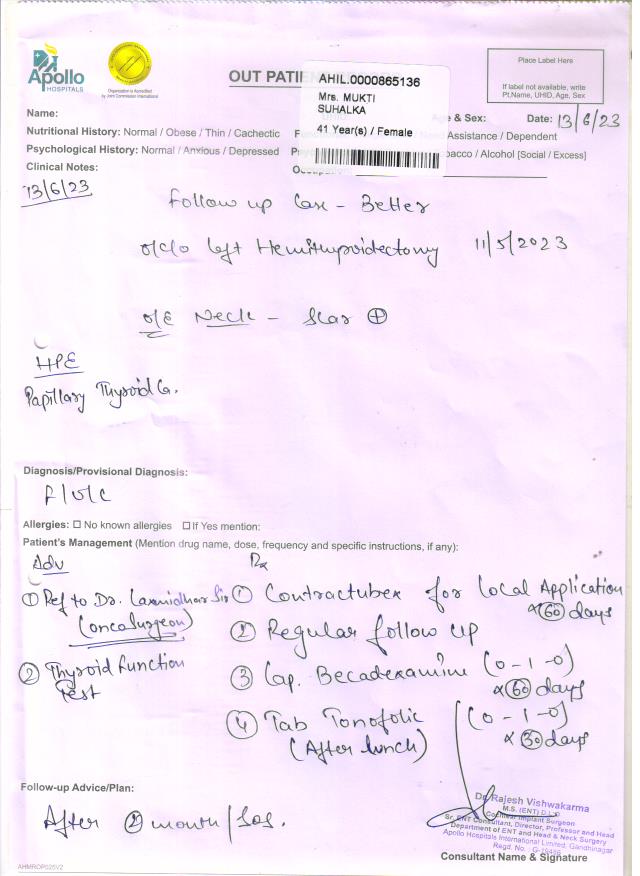 Apollo
HOSPITALS
Organization is Accredited
by Joint Commission International
OUT PATIE
AHIL.0000865136
Mrs. MUKTI
SUHALKA
41 Year(s) / Female
Place Label Here
If label not available, write
Pt.Name, UHID, Age, Sex
Name:
e & Sex:
Date: 13/6/23
Nutritional History: Normal / Obese / Thin / Cachectic
Assistance / Dependent
Psychological History: Normal / Anxious / Depressed
bacco / Alcohol [Social / Excess]
Clinical Notes:
13/6/23
Follow up Case - Better
o/c/o left Hemithyroidectomy 11/5/2023
o/E Neck - Scar ⊕
HPE
Papillary Thyroid Ca.
Diagnosis/Provisional Diagnosis:
F/U/C
Allergies: ☐ No known allergies ☐ If Yes mention:
Patient's Management (Mention drug name, dose, frequency and specific instructions, if any):
Adv
① Ref to Dr. Laxmidhar Sir
(oncosurgeon)
② Thyroid function
Test
Rx
① Contractubex for Local Application
x 60 days
② Regular follow up
③ Cap. Becadexamine (0-1-0)
x 60 days
④ Tab Tonofolic (0-1-0)
(After lunch) x 30 days
Follow-up Advice/Plan:
After ② month / Sos.
Dr. Rajesh Vishwakarma
M.S. (ENT) D.L.O
Cochlear Implant Surgeon
Sr. ENT Consultant, Director, Professor and Head
Department of ENT and Head & Neck Surgery
Apollo Hospitals International Limited, Gandhinagar
Regd. No.: G-
Consultant Name & Signature
AHMROP025V2